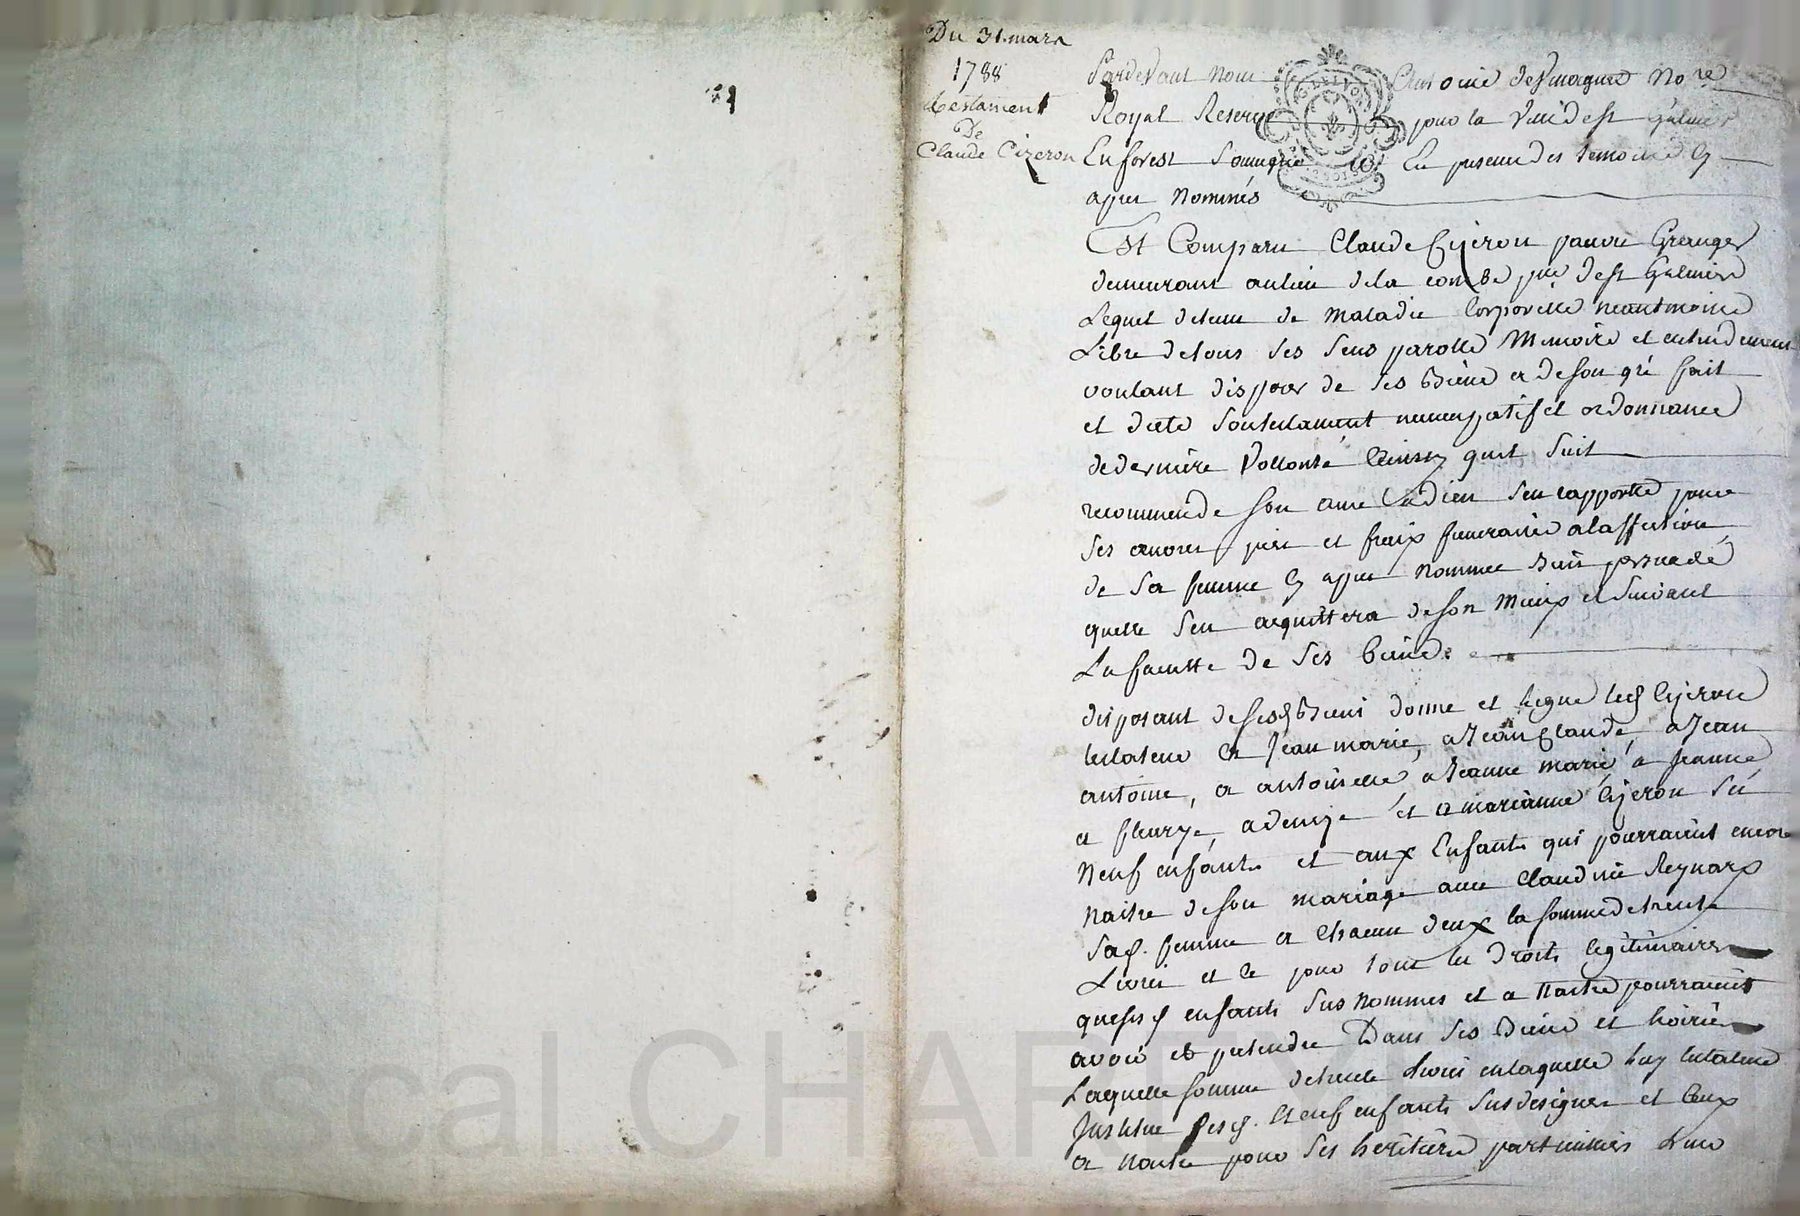 Du 31 mars
1788
testament
De
Claude Cizeron
Pardevant nous Antoine desvmagnes No.re
Royal Reservé pour la ville de st galmier
En forest soussigné et En presence des temoins Cy
apres Nommés
Est Comparu Claude Cizeron pauvre Granger
demeurant au lieu de la combe p.sse de st Galmier
Lequel detenu de maladie Corporelle neantmoins
Libre de tous ses sens parolle Memoire et entendement
voulant disposer de ses biens a de son gré fait
et dicté son testament nuncupatif et ordonnance
de derniere Vollonté Ainsy qu'il suit
recommende son ame a dieu s'en rapporte pour
ses œuvres pies et fraix funeraires a l'affection
de sa femme Cy apres nommée bien persuadé
quelle s'en acquittera de son mieux et suivant
La faculté de ses biens
disposant de sesd biens donne et legue led Cizeron
testateur a Jean marie, a Jean Claude, a Jean
antoine, a antoinette, a Jeanne marie, a Jeanne
a fleurye, a denize et a marianne Cizeron ses
Neuf enfants et aux Enfants qui pourraient encore
naitre de son mariage avec Claudine Reynard
sad. femme a Chacun deux la somme de trente
Livres et ce pour tous les droits legitimaires
que sesd enfants sus nommés et a naitre pourraient
avoir et pretendre Dans ses biens et hoirie
Laquelle somme de trente livres en laquelle luy testateur
Institue sesd. Neuf enfants sus designés et Ceux
a naitre pour ses heritiers particuliers